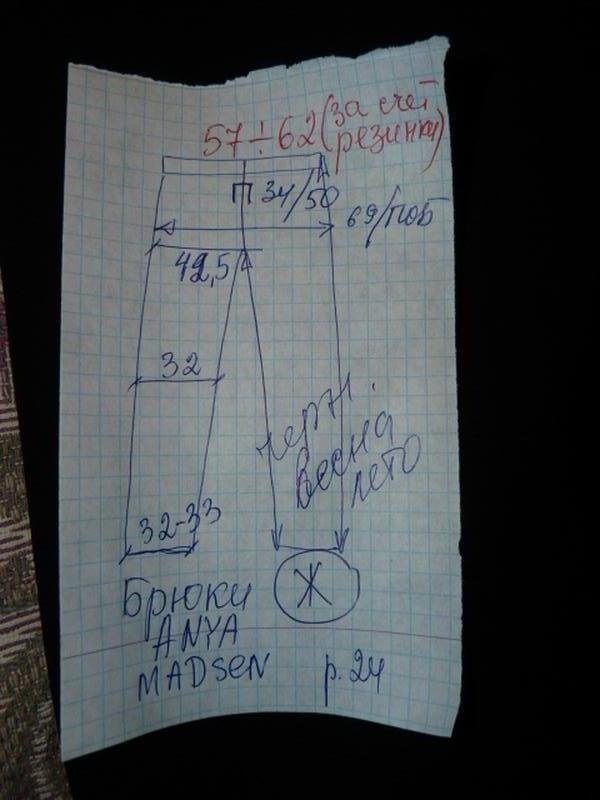 57÷62 (за счёт
резинки)
П 34/50
69/поб
42,5
32
черн.
весна
лето
32-33
Брюки
Ж
ANYA
MADSEN
р. 24